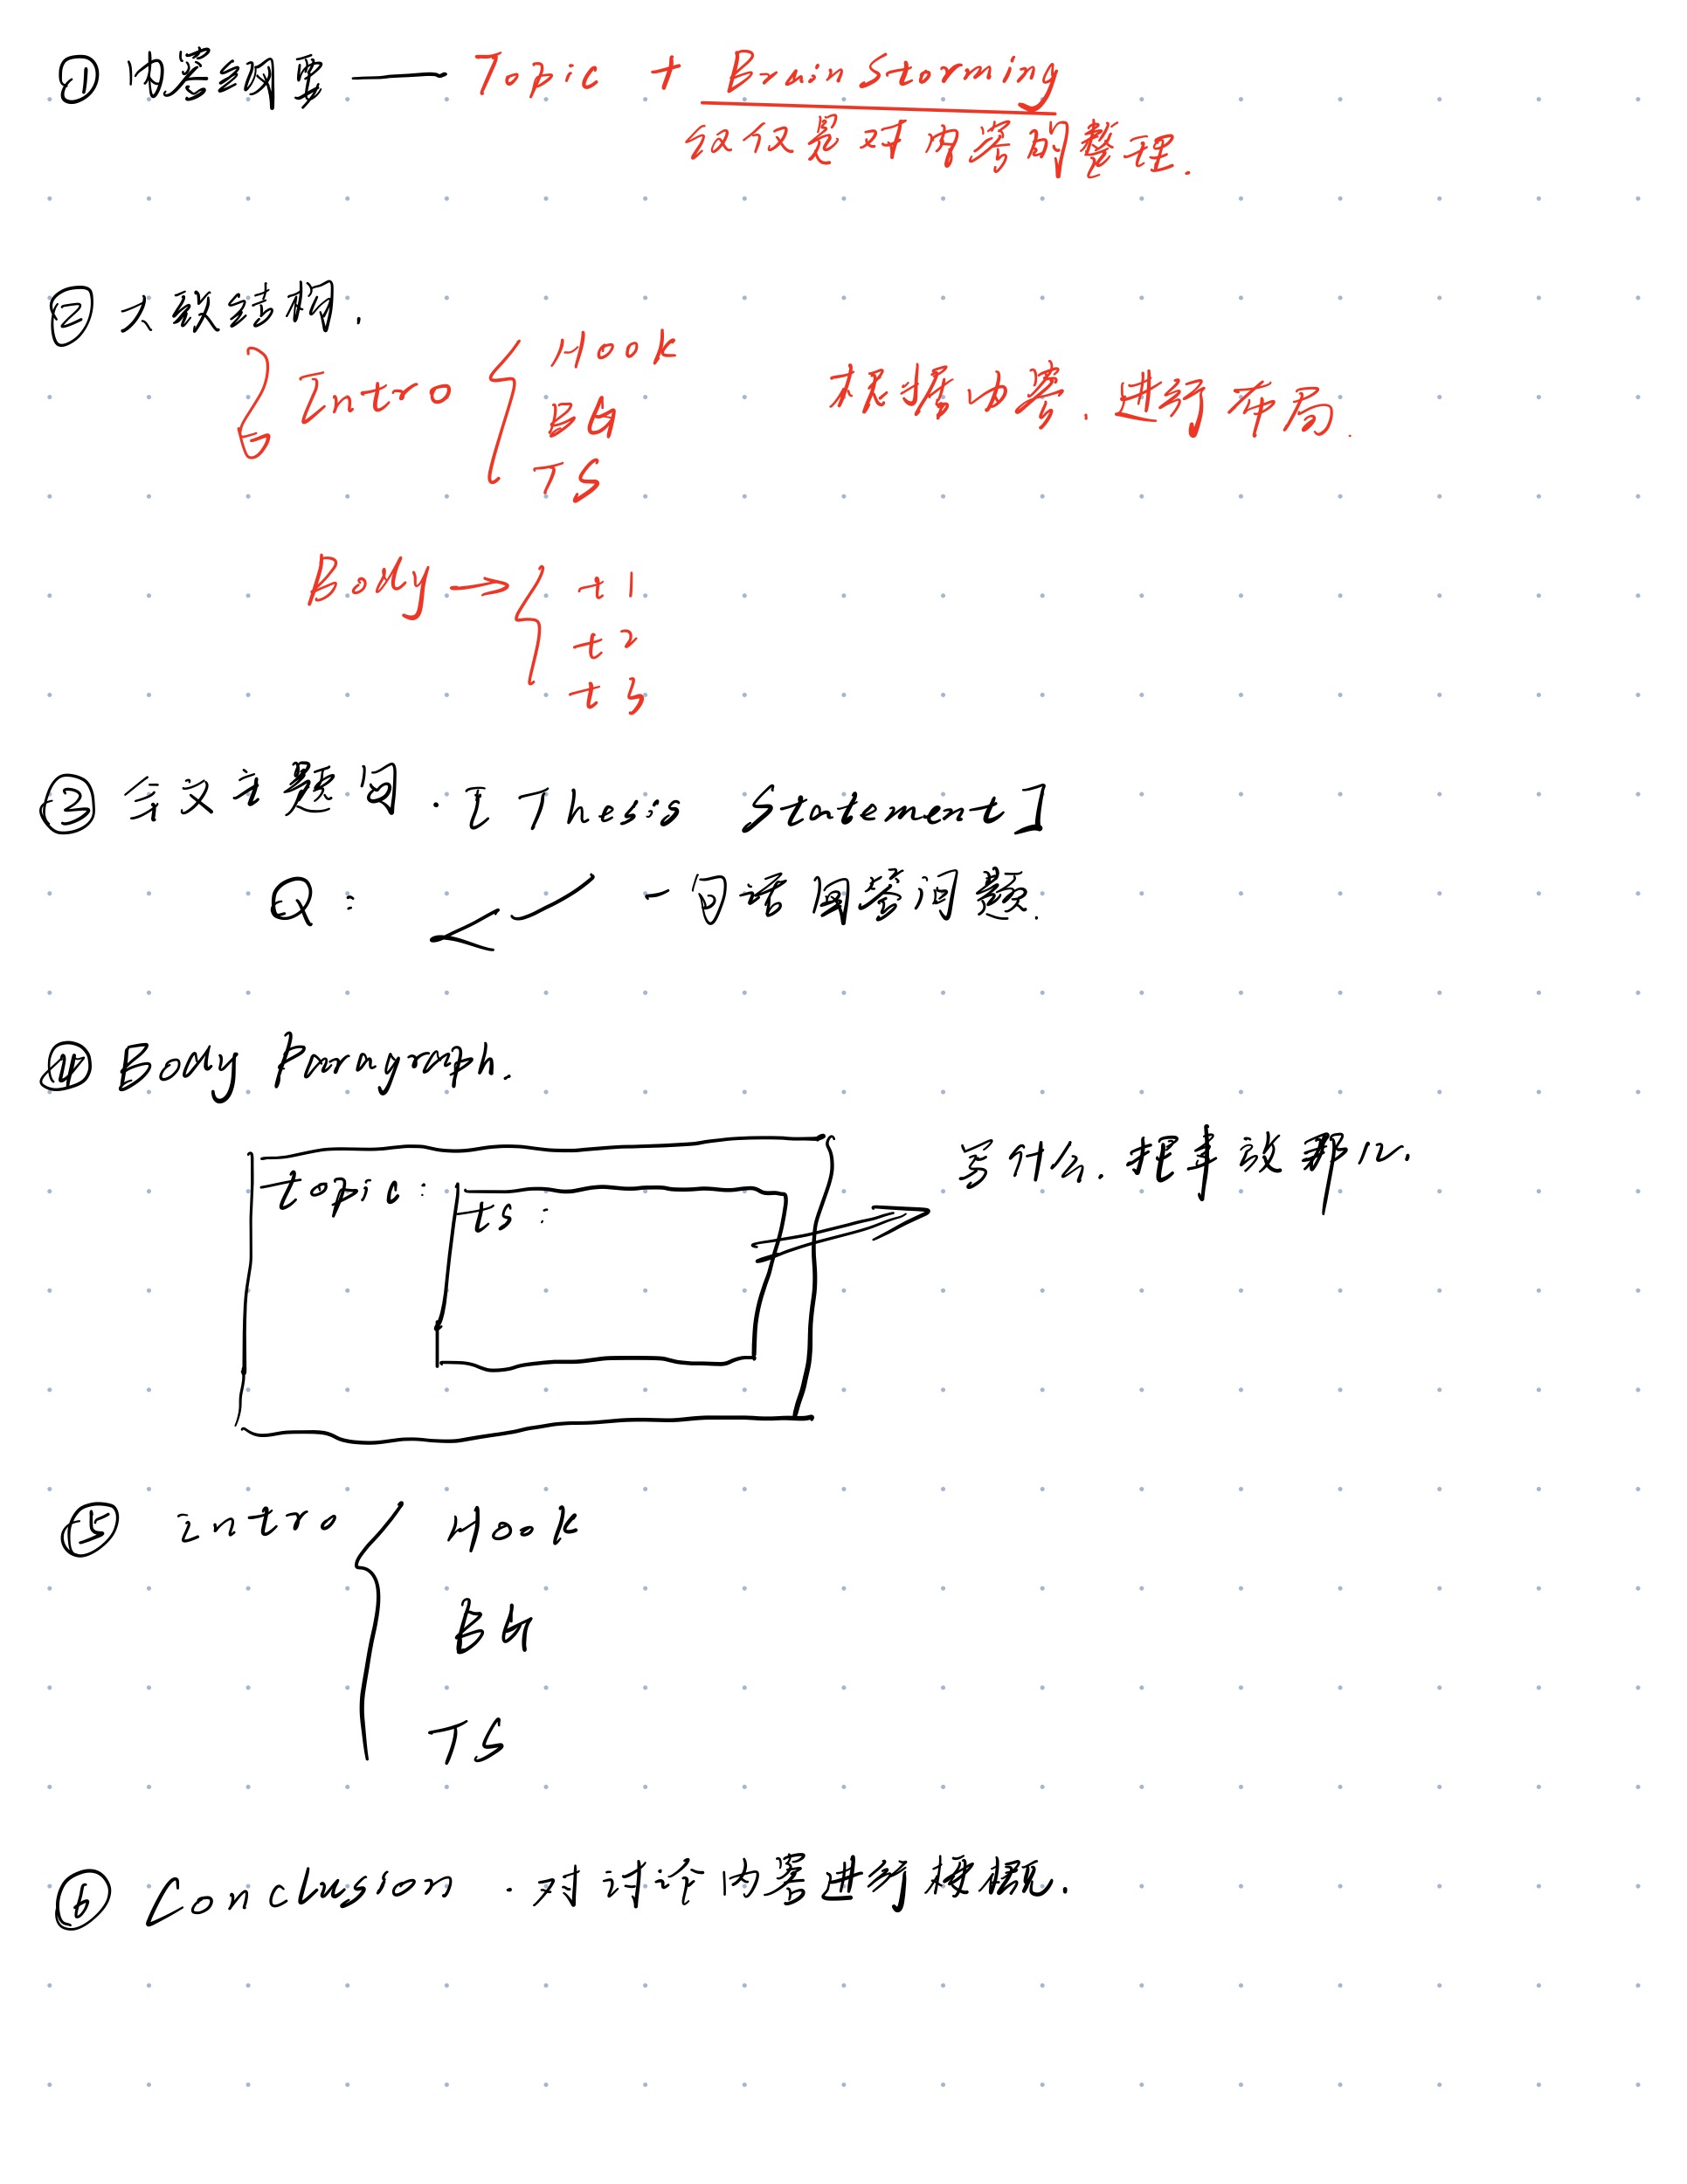 ① 内容纲要 — Topic + BrainStorming
仅仅是对内容的整理.
② 大致结构.
Intro { Hook
BG
TS
根据内容,进行布局.
Body → { t1
t2
t3
③ 全文主题句.[Thesis Statement]
Q: 一句话回答问题.
④ Body Paragraph.
topic:
ts:
写什么.把 放那儿.
⑤ intro { Hook
BG
TS
⑥ Conclusion.对讨论内容进行 概.